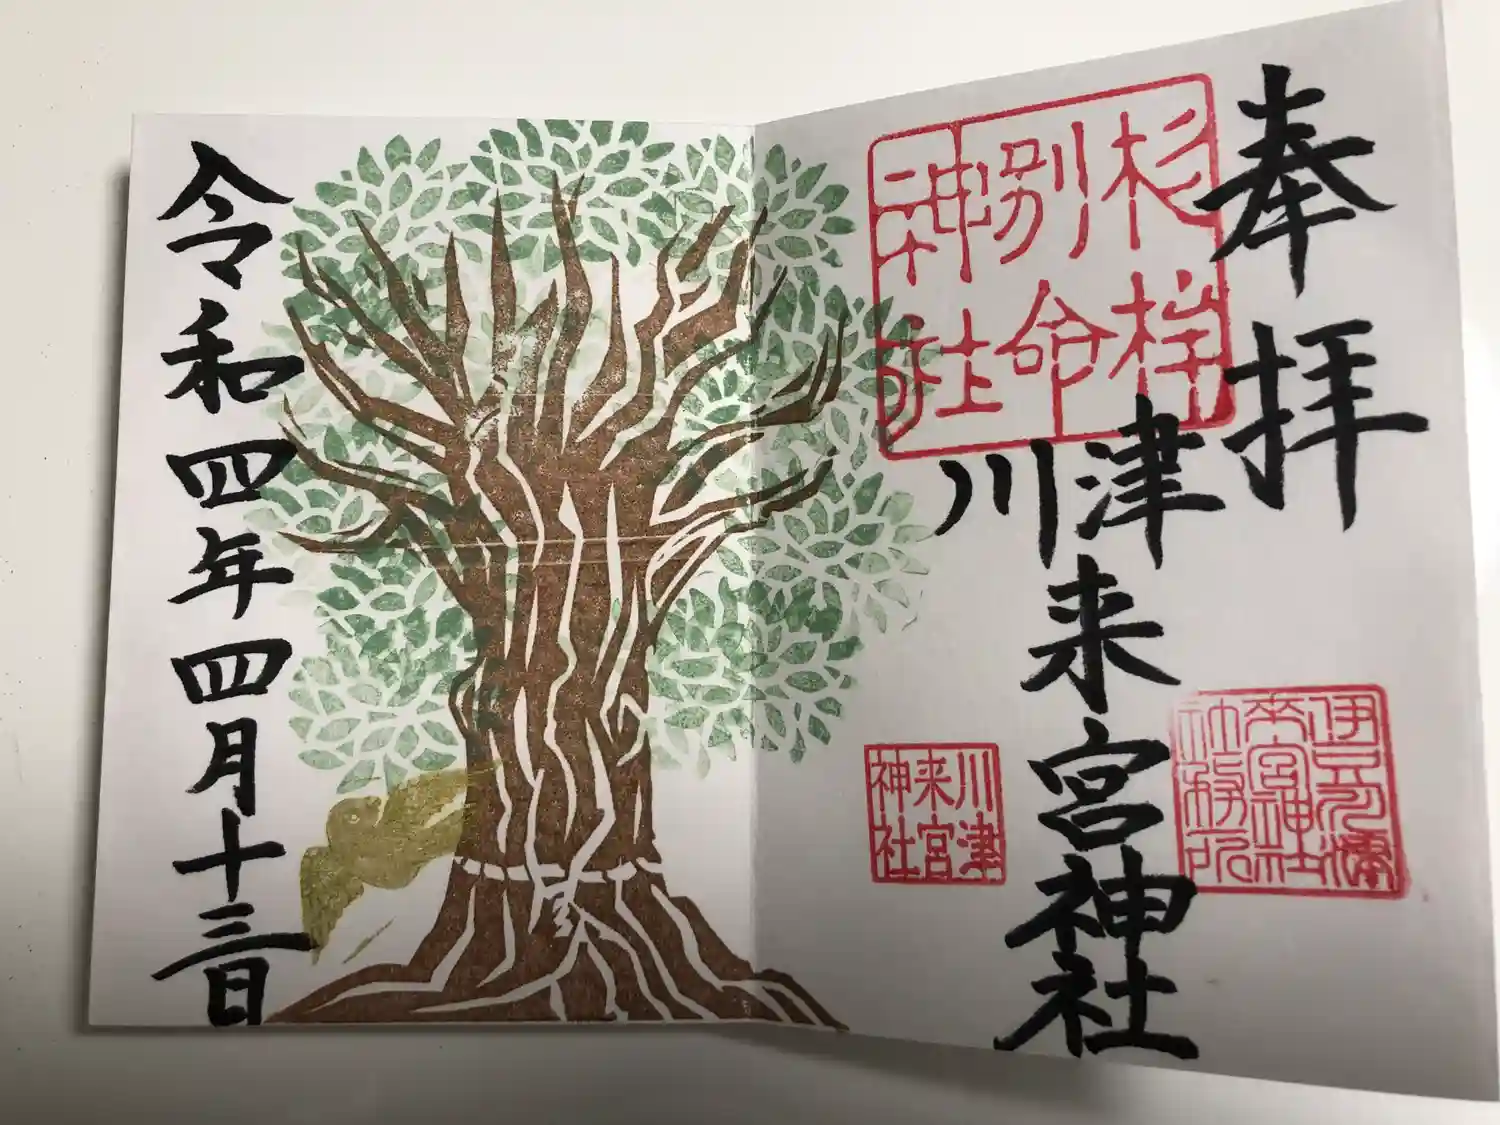 奉拝
杉桙
別命
神社
川津来宮神社
来宮神社
社務所
川津
来宮
神社
令和四年四月十三日